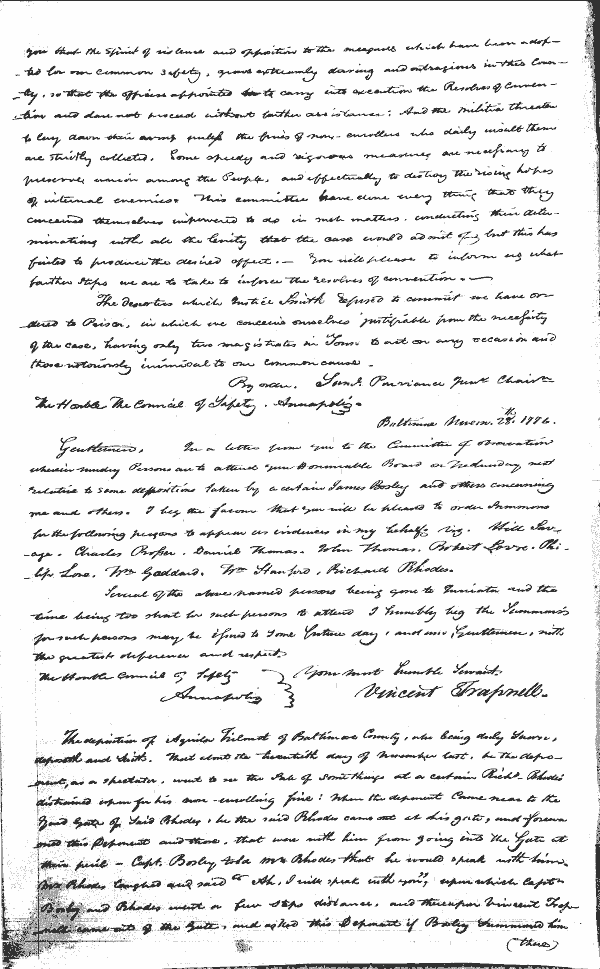 you that the Spirit of violence and opposition to the measures which have been adop-
ted for our common safety, grows extreamly daring and outragious in this Coun-
-ty, so that the officers appointed to carry into execution the Resolves of Conven-
-tion and dare not proceed without farther assistance: And the militia threaten
to lay down their arms unless the fines of non-enrollers who daily insult them
are strictly collected. Some speedy and vigorous measures are necessary to
preserve union among the People, and effectually to destroy the rising hopes
of internal enemies. This committee have done every thing that they
conceived themselves impowered to do in such matters, conducting their deter-
minations with all the lenity that the case would admit of, but this has
failed to produce the desired effect.— You will please to inform us what
farther steps we are to take to inforce the resolves of convention.—
The deserters which Justice Smith refused to commit we have or-
dered to Prison, in which we conceive ourselves justifiable from the necessity
of the case, having only two magistrates in Town to act on any occasion and
those notoriously inimical to our common cause.
By order. Saml. Purviance Junr. Chairn.
The Honble The Council of Safety. Annapolis.
Baltimore Novem. 28th. 1776.
Gentlemen, In a letter from you to the Committee of observation
wherein sundry Persons are to attend your Honourable Board on Wednesday next
relative to some depositions taken by a certain James Bosley and others concerning
me and others. I beg the favour that you will be pleased to order Summons
for the following persons to appear as evidences in my behalf, viz. Hill Sav-
age. Charles Prosser. Daniel Thomas. John Thomas. Robert Love. Phi-
-lip Love. Wm. Goddard. Wm. Hanford. Richard Rhodes.
Several of the above named persons being gone to and the
time being too short for such persons to attend I humbly beg the Summons
for such persons may be to some future day, and am, Gentlemen, with
the greatest deference and respect.
The Honble Council of Safety Your most humble Servant.
Annapolis Vincent Trapnell.
The deposition of Aquila of Baltimore County, who being duly Sworn,
deposeth and saith. That about the twentieth day of November last, he the depo-
nent, as a spectator, went to see the Sale of some things at a certain Richd. Rhodes
distrained upon for his non-enrolling fine: When the deponent came near to the
Yard Gate of Said Rhodes, he the said Rhodes came out at his gate, and forewa
rned this Deponent and those, that were with him from going into the Gate at
their peril – Capt. Bosley told Mr. Rhodes that he would speak with him.
Mr. Rhodes laughed and said "Ah, I will speak with you", upon which Captn.
Bosley and Rhodes went a few steps distance, and thereupon Vincent Trap
nell came out of the Gate, and asked this Deponent if Bosley Summoned him
(there)